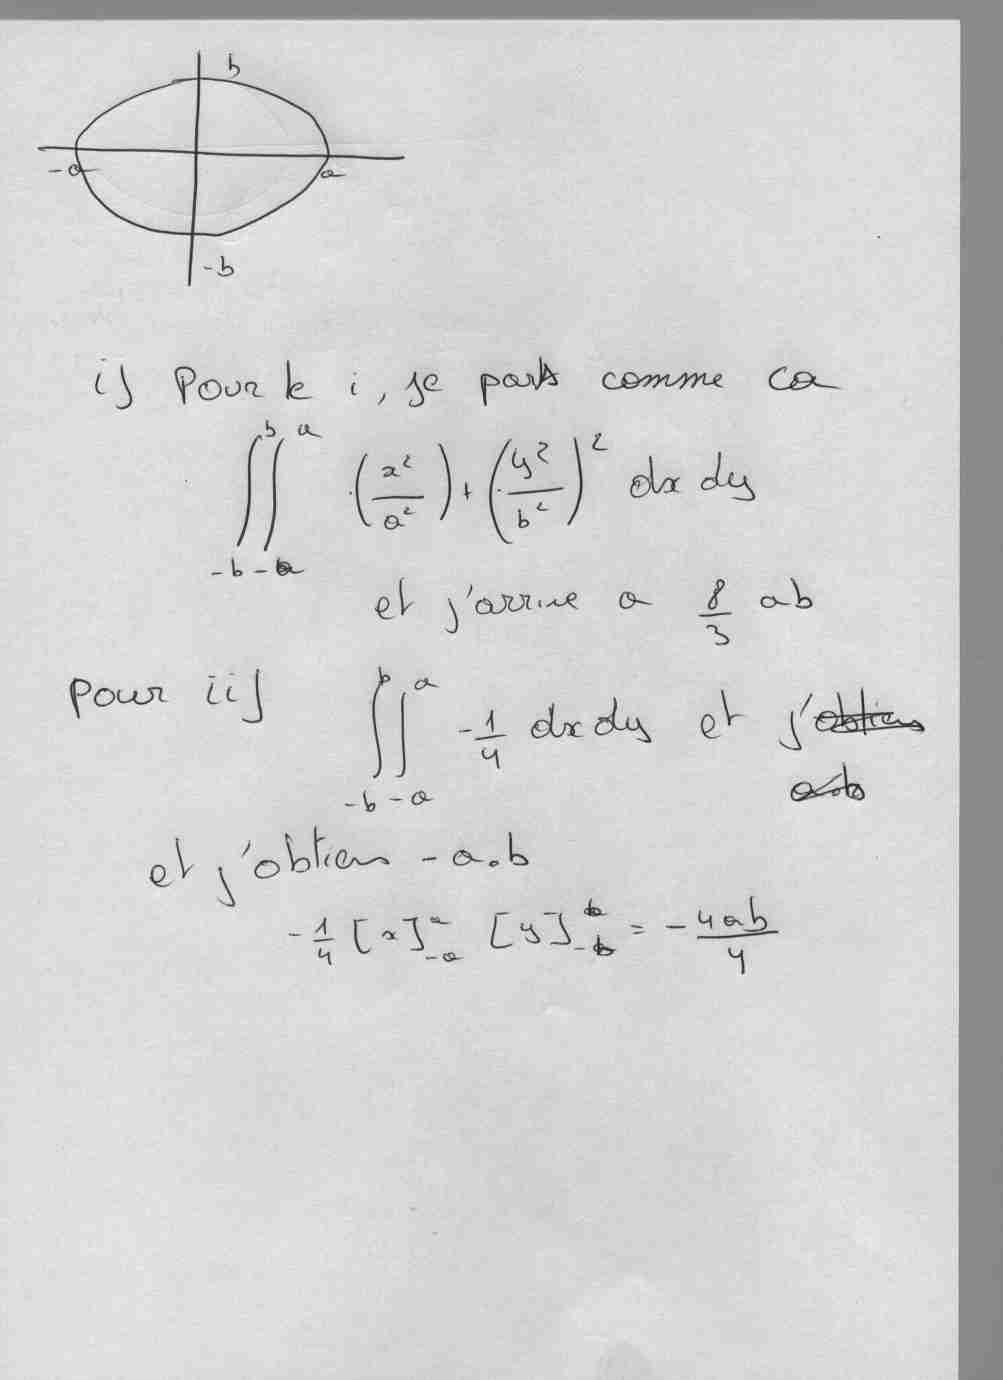 b
-a a
-b
i) Pour le i, je pars comme ca
∫_{-b}^{b} ∫_{-a}^{a} (x²/a²) + (y²/b²)² dx dy
et j'arrive a 8/3 ab
Pour ii) ∫_{-b}^{b} ∫_{-a}^{a} -1/4 dx dy et j'obtiens
a.b
et j'obtiens - a.b
-1/4 [x]_{-a}^{a} [y]_{-b}^{b} = - 4ab/4